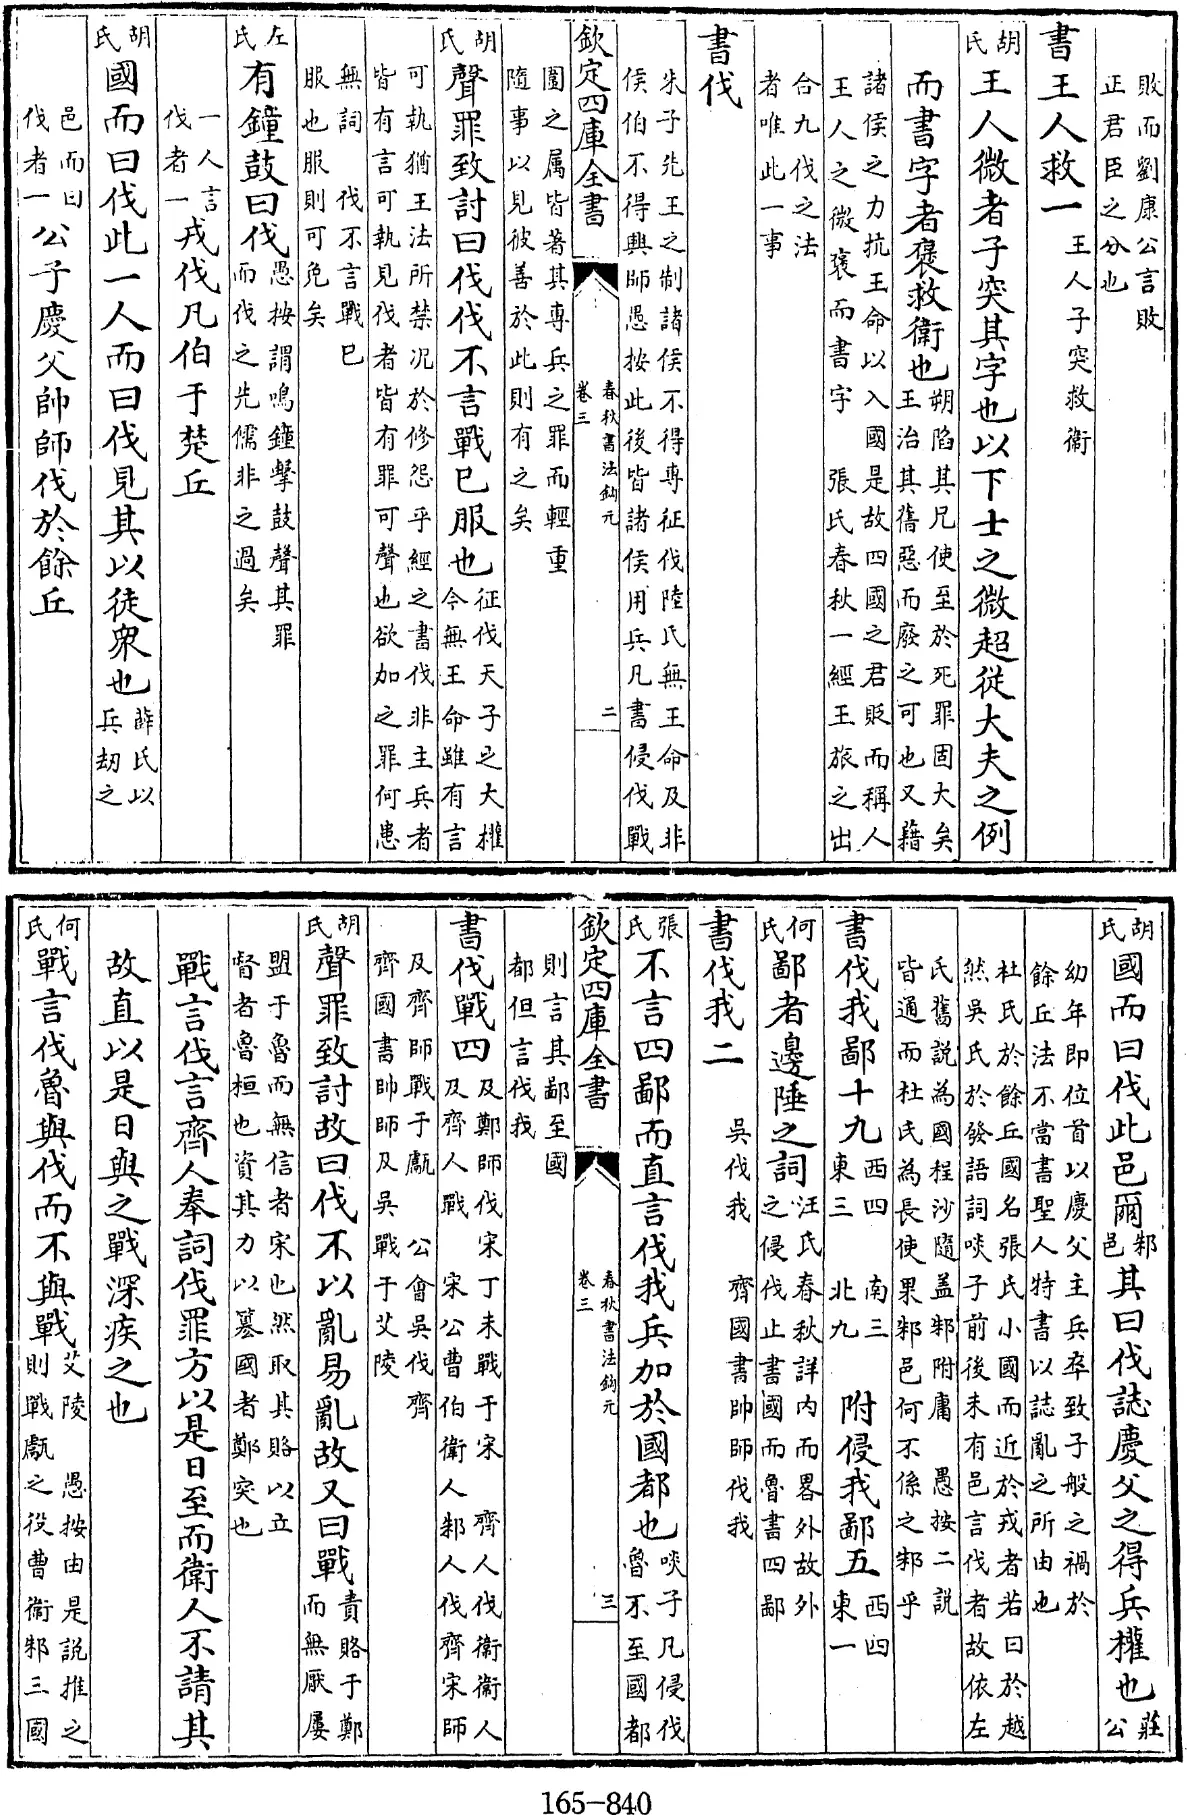 敗而劉康公言敗
正君臣之分也
書王人救一 王人子突救衛
胡氏王人微者子突其字也以下士之微超從大夫之例
而書字者褒救衛也朔陷其兄使至於死罪固大矣王治其舊惡而廢之可也又藉
諸侯之力抗王命以入國是故四國之君貶而稱人
王人之微褒而書字 張氏春秋一經王旅之出
合九伐之法
者唯此一事
書伐
朱子先王之制諸侯不得専征伐陸氏無王命及非
侯伯不得興師愚按此後皆諸侯用兵凡書侵伐戰
欽定四庫全書 春秋書法鈎元 卷三 二
圍之属皆著其專兵之罪而輕重
隨事以見彼善於此則有之矣
胡氏聲罪致討曰伐伐不言戰已服也征伐天子之大權今無王命雖有言
可執猶王法所禁况於修怨乎經之書伐非主兵者
皆有言可執見伐者皆有罪可聲也欲加之罪何患
無詞 伐不言戰已
服也服則可免矣
左氏有鐘鼓曰伐愚按謂鳴鐘擊鼓聲其罪而伐之先儒非之過矣
一人言伐者一戎伐凡伯于楚丘
胡氏國而曰伐此一人而曰伐見其以徒衆也薛氏以兵刼之
邑而曰伐者一公子慶父帥師伐於餘丘
胡氏國而曰伐此邑爾邾邑其曰伐誌慶父之得兵權也莊公
幼年即位首以慶父主兵卒致子般之禍於
餘丘法不當書聖人特書以誌亂之所由也
杜氏於餘丘國名張氏小國而近於戎者若曰於越
然吳氏於發語詞啖子前後未有邑言伐者故依左
氏舊說為國程沙隨盖邾附庸 愚按二說
皆通而杜氏為長使果邾邑何不係之邾乎
書伐我鄙十九西四 南三東三 北九 附侵我鄙五西四東一
何氏鄙者邊陲之詞汪氏春秋詳内而畧外故外之侵伐止書國而魯書四鄙
書伐我二 吳伐我 齊國書帥師伐我
張氏不言四鄙而直言伐我兵加於國都也啖子凡侵伐魯不至國都
欽定四庫全書 春秋書法鈎元 卷三 三
則言其鄙至國
都但言伐我
書伐戰四及鄭師伐宋丁未戰于宋 齊人伐衛衛人及齊人戰 宋公曹伯衛人邾人伐齊宋師
及齊師戰于甗 公會吳伐齊
齊國書帥師及吳戰于艾陵
胡氏聲罪致討故曰伐不以亂易亂故又曰戰責賂于鄭而無厭屢
盟于魯而無信者宋也然取其賂以立
督者魯桓也資其力以簒國者鄭突也
戰言伐言齊人奉詞伐罪方以是日至而衛人不請其
故直以是日與之戰深疾之也
何氏戰言伐魯與伐而不與戰艾陵 愚按由是說推之則戰甗之役曹衛邾三國
165-840